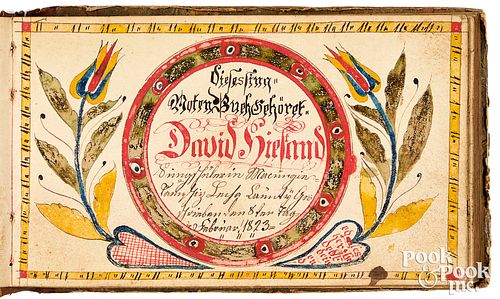 Dieses sing=
Noten Buch Gehöret.
David Hiestand
Sing Schüler in Macungie
Taunschip Lecha Caunty Ge=
schrieben den 8ter Tag
Februar, 1823=
POOK
& POOK
INC